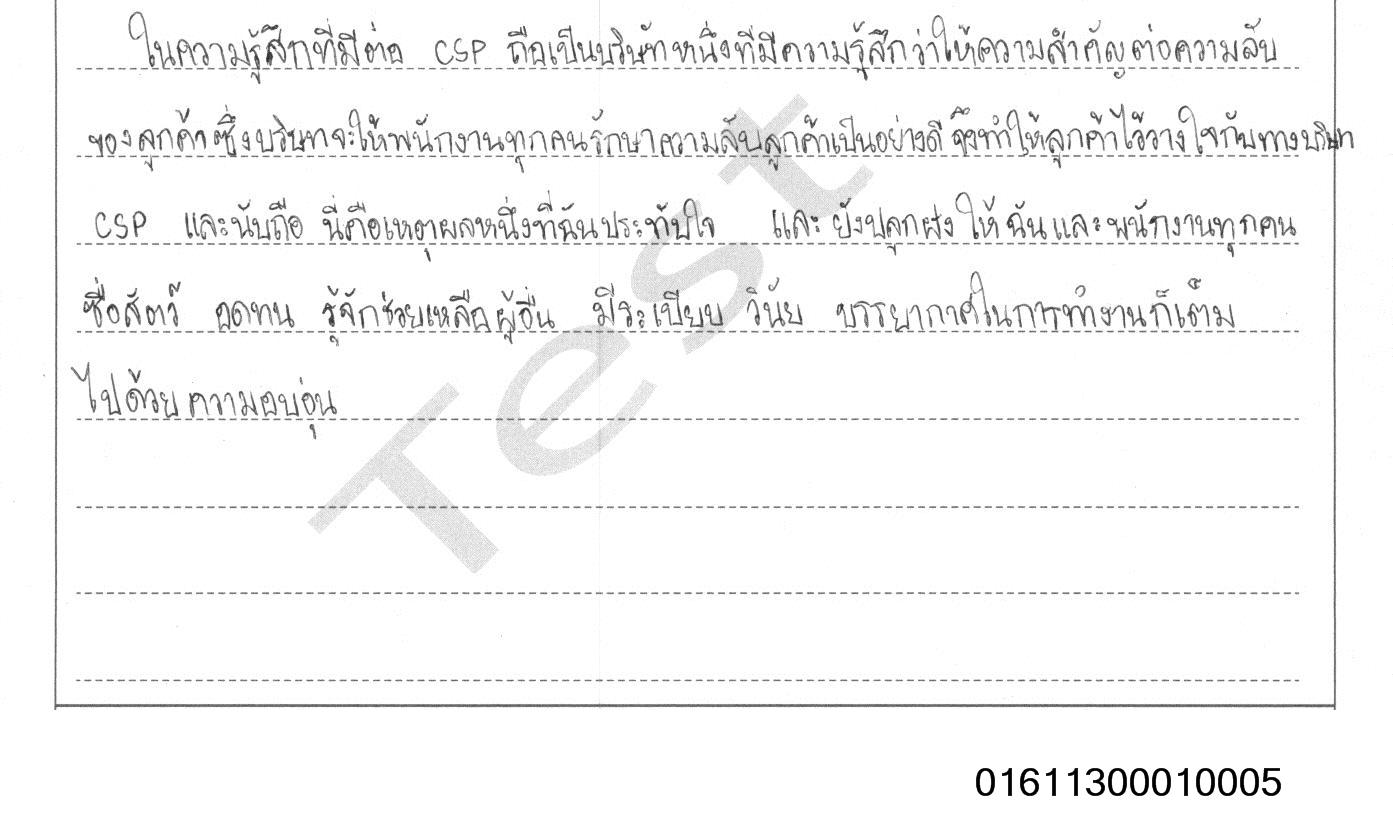 ในความรู้สึกที่มีต่อ CSP ถือเป็นบริษัทหนึ่งที่มีความรู้สึกว่าให้ความสำคัญต่อความลับ
ของลูกค้า ซึ่งบริษทจะให้พนักงานทุกคนรักษาความลับลูกค้าเป็นอย่างดี จึงทำให้ลูกค้าไว้วางใจกับทางบริษท
CSP และนับถือ นี่คือเหตุผลหนึ่งที่ฉันประทับใจ และ ยังปลูกฝัง ให้ ฉัน และ พนักงานทุกคน
ซื่อสัตว์ อดทน รู้จักช่วยเหลือผู้อื่น มีระเบียบ วินัย บรรยากาศในการทำงานก็เต็ม
ไปด้วย ความอบอุ่น
Test
01611300010005